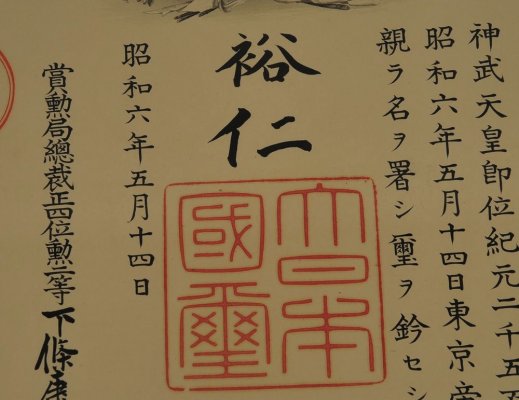 神武天皇即位紀元二千五
昭和六年五月十四日東京帝
親ラ名ヲ署シ璽ヲ鈐セシ
裕仁
大日本
國璽
昭和六年五月十四日
賞勲局總裁正四位勲二等下條康